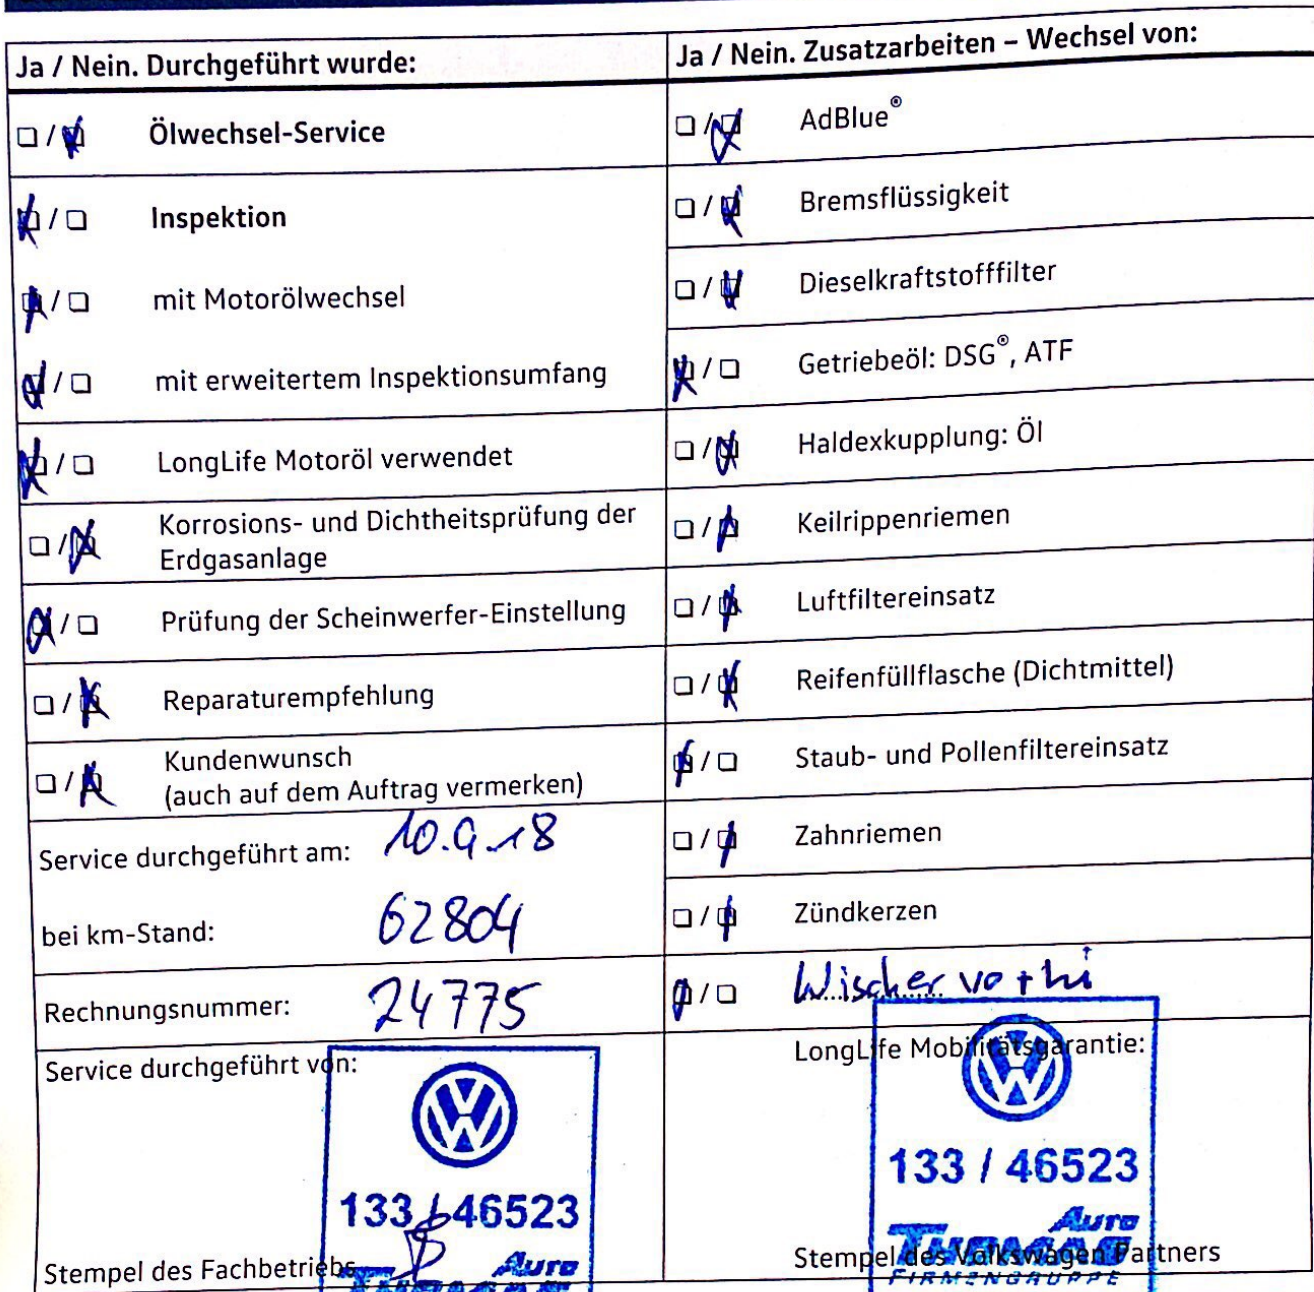 Ja / Nein. Durchgeführt wurde:
Ölwechsel-Service
Inspektion
mit Motorölwechsel
mit erweitertem Inspektionsumfang
LongLife Motoröl verwendet
Korrosions- und Dichtheitsprüfung der
Erdgasanlage
Prüfung der Scheinwerfer-Einstellung
Reparaturempfehlung
Kundenwunsch
(auch auf dem Auftrag vermerken)
Service durchgeführt am: 10.9.18
bei km-Stand: 62804
Rechnungsnummer: 24775
Service durchgeführt von:
133 / 46523
Auto
Stempel des Fachbetriebs
Ja / Nein. Zusatzarbeiten – Wechsel von:
AdBlue®
Bremsflüssigkeit
Dieselkraftstofffilter
Getriebeöl: DSG®, ATF
Haldexkupplung: Öl
Keilrippenriemen
Luftfiltereinsatz
Reifenfüllflasche (Dichtmittel)
Staub- und Pollenfiltereinsatz
Zahnriemen
Zündkerzen
Wischer vo + hi
LongLife Mobilitätsgarantie:
133 / 46523
Auto
Thomas
Stempel des Volkswagen Partners
FIRMENGRUPPE